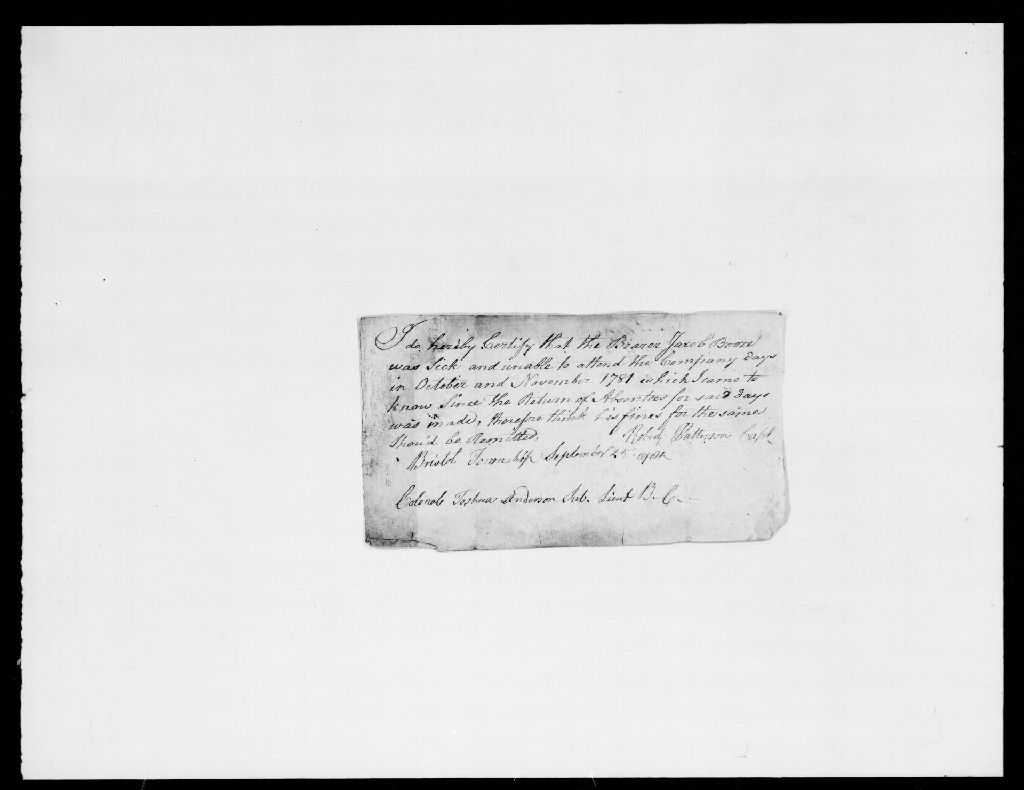 I do hereby Certify that the Bearer Jacob Booze
was Sick and unable to attend the Company days
in October and November 1781 which I came to
know Since the Return of Absentees for said days
was made, therefore think his fines for the same
Shou'd be Remitted, Robin Patterson Capt
Bristol Township September 25
Colonole Joshua Anderson Sub. Lieut B. C.